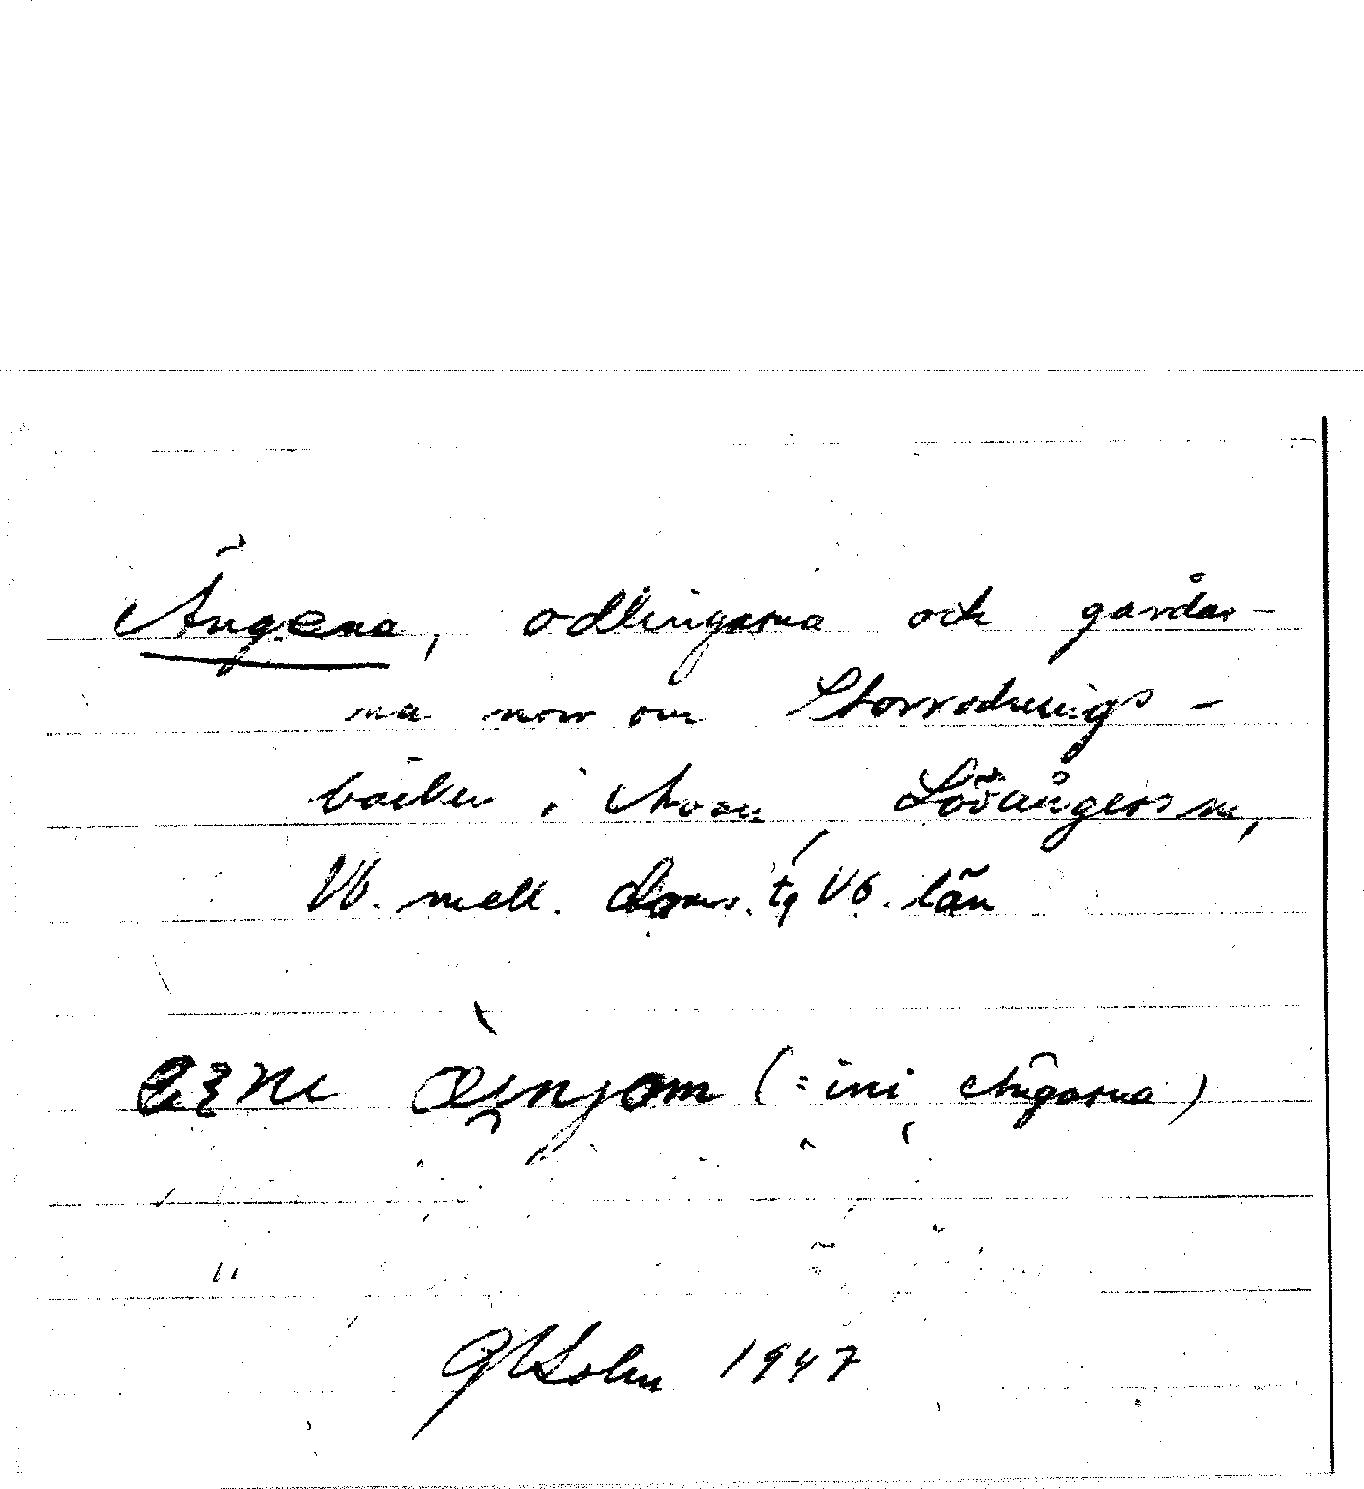 Ängena, odlingarna och gårdar-
na norr om Storrödnings-
bäcken i Avan, Lövångers sn,
Vb. mell. doms. tg Vb. län
(= ini ängarna)
1947